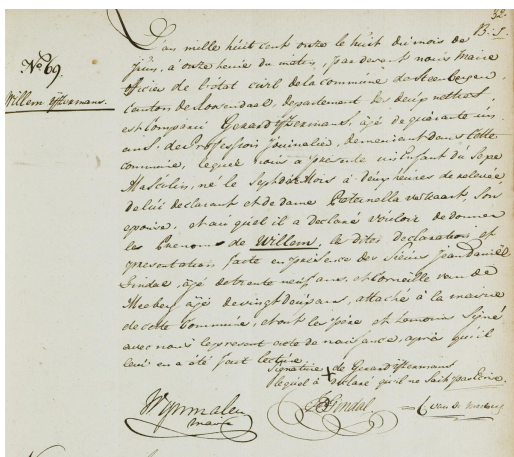 32.
B. S.
No. 69.
Willem Ijsermans.
L'an mille huit cent onze le huit du mois de
Juin, à onze heure du matin, par devant nous Maire
officier de l'état civil de la commune de Steenbergen,
canton de Rosendaal, departement des deux nethes,
est Comparu Gerard Ijsermans, âjé de quarante un
ans, de Profession Journalier, demeurant dans Cette
commune, lequel nous a présenté un Enfant du Sexe
Masculin, né le Sept du Mois à deux heures de relevée
de lui declarant et de dame Peternella verkaart, Son
epouse, et au quel il a declaré vouloir de donner
les Prenoms de Willem, le dites Declaration, et
presentation, faite en présence des Sieurs Jean Daniel
Lindal, âjé de trente neuf ans, et Corneille van de
Meeberg âjé de vingt deux ans, attaché à la mairie
de cette Commune, et ont le père et temoins Signé
avec nous le present acte de naissance, après qu'il
leur en a été fait lecture.
Signature de Gerard Ijsermans
lequel a declaré qu'il ne Sait pas Ecrire.
maire
Lindal
C van de